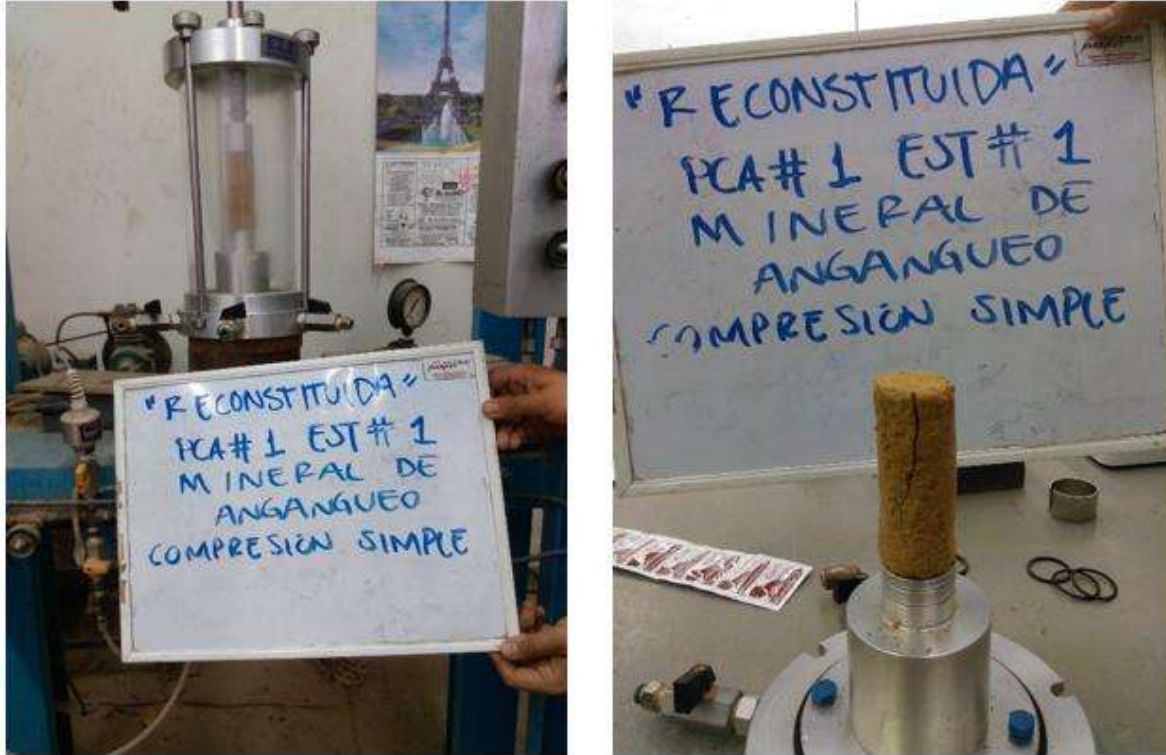 "RECONSTITUIDA"
PCA # 1 EST # 1
MINERAL DE
ANGANGUEO
COMPRESIÓN SIMPLE
"RECONSTITUIDA"
PCA # 1 EST # 1
MINERAL DE
ANGANGUEO
COMPRESIÓN SIMPLE